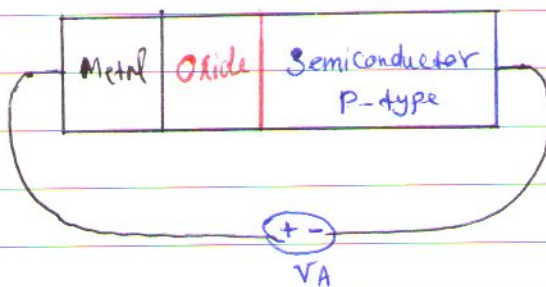 Metal Oxide Semiconductor
P-type
+ -
VA